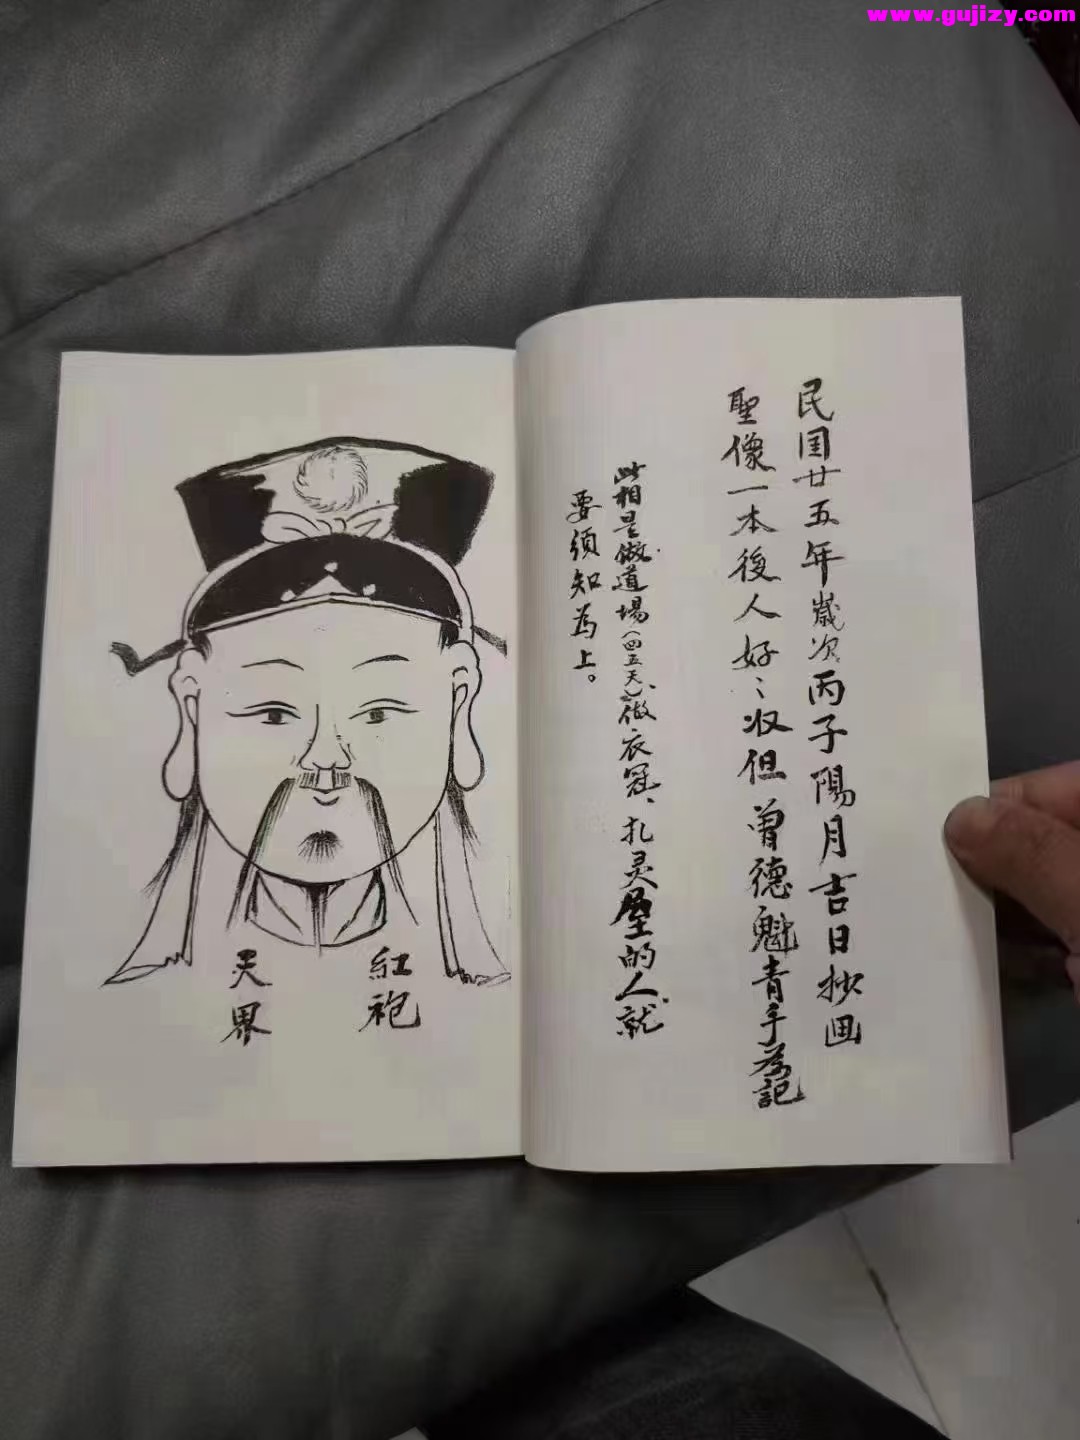 www.gujizy.com
民国廿五年歲次丙子陽月吉日抄画
聖像一本後人好〻收但曾德魁青手為記
此相是做道場(四五天)做衣冠、扎灵屋的人就
要須知為上。
紅袍
天界